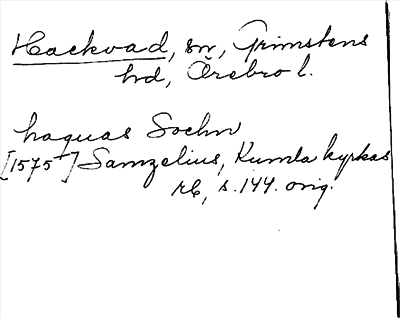 Hackvad, sn, Grimstens
hd, Örebro l.
haquas Sochn
[1575] Samzelius, Kumla kyrkas
rb, s. 144. orig.